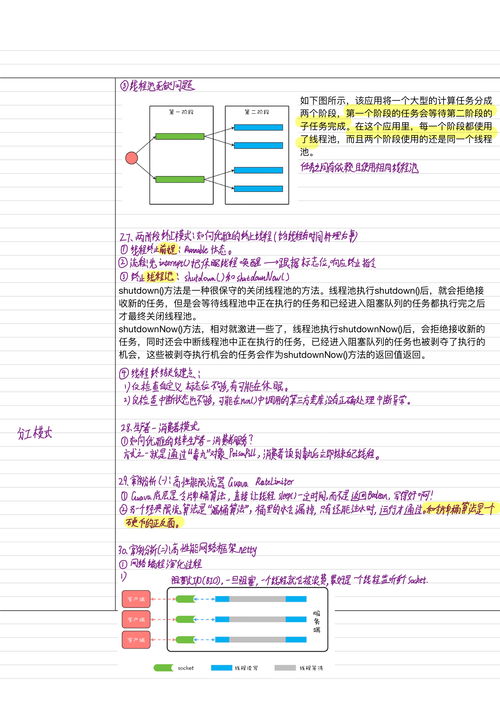 ③线程池死锁问题
第一阶段
第二阶段
如下图所示，该应用将一个大型的计算任务分成
两个阶段，第一个阶段的任务会等待第二阶段的
子任务完成。在这个应用里，每一个阶段都使用
了线程池，而且两个阶段使用的还是同一个线程
池。
任务之间有依赖且使用相同线程池
27. 两阶段终止模式：如何优雅的终止线程（给线程有时间料理后事）
①线程终止前提：Runnable 状态。
②流程：先 interrupt() 把休眠线程唤醒 → 跟据标志位，响应终止指令
③终止线程池：shutdown() 和 shutdownNow()
shutdown()方法是一种很保守的关闭线程池的方法。线程池执行shutdown()后，就会拒绝接
收新的任务，但是会等待线程池中正在执行的任务和已经进入阻塞队列的任务都执行完之后
才最终关闭线程池。
shutdownNow()方法，相对就激进一些了，线程池执行shutdownNow()后，会拒绝接收新的
任务，同时还会中断线程池中正在执行的任务，已经进入阻塞队列的任务也被剥夺了执行的
机会，这些被剥夺执行机会的任务会作为shutdownNow()方法的返回值返回。
④线程终结注意点：
1) 仅检查自定义标志位不够，有可能在休眠。
2) 仅检查中断状态也不够，可能在run()中调用的第三方类库没有正确处理中断异常。
分工模式
28. 生产者-消费者模式
①如何优雅的结束生产者-消费者服务？
方式之一就是通过“毒丸”对象 PoisonPill，消费者读到毒丸后立即结束自己线程。
29. 案例分析(一)：高性能限流器 Guava RateLimiter
①Guava 底层是令牌桶算法，直接让线程 sleep() 一定时间，而不是返回 Boolean，写得妙啊！
②另一个经典限流算法是“漏桶算法”，桶里的水在漏掉，只有还能注水时，运行才通过。和令牌桶算法是一个
硬币下的正反面。
30. 案例分析(二)：高性能网络框架 netty
①网络编程演化过程
1)
阻塞式IO(BIO)，一旦阻塞，一个线程就会被浪费，最好是一个线程监听多个 Socket.
客户端
客户端
客户端
服务端
socket
线程读写
线程等待